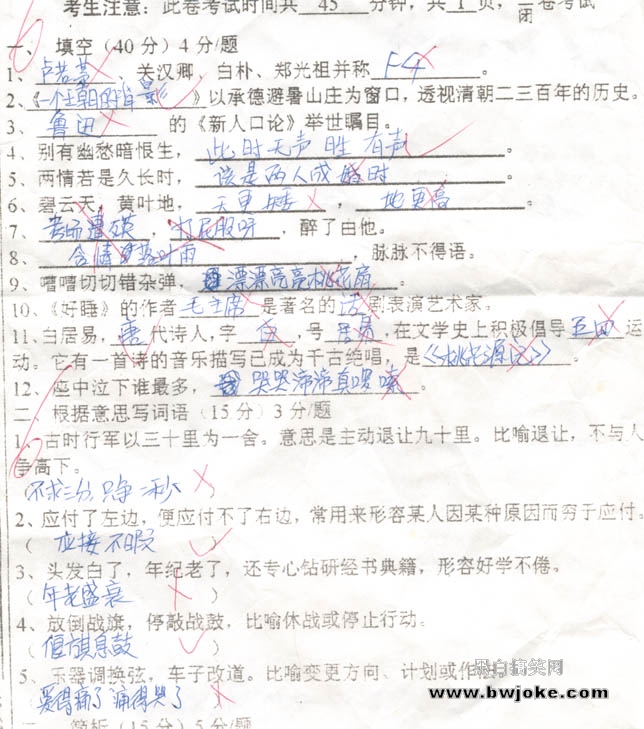 考生注意：此卷考试时间共 45 分钟，共 1 页，闭卷考试
一、填空（40分）4分/题
1、卢若莹、关汉卿，白朴、郑光祖并称 F4 。
2、《一个王朝的背影》以承德避暑山庄为窗口，透视清朝二三百年的历史。
3、鲁迅 的《新人口论》举世瞩目。
4、别有幽愁暗恨生，此时无声胜有声。
5、两情若是久长时，该是两人成婚时。
6、碧云天，黄叶地，天更矮，地更高。
7、考场遭殃，打屁股呀，醉了由他。
8、含情 叶雨，脉脉不得语。
9、嘈嘈切切错杂弹，漂漂亮亮桃花扇。
10、《好睡》的作者毛主席是著名的话剧表演艺术家。
11、白居易，唐代诗人，字 白，号 居易，在文学史上积极倡导五四运
动。它有一首诗的音乐描写已成为千古绝唱，是《桃花源记》。
12、座中泣下谁最多，哭哭啼啼真啰嗦。
二 根据意思写词语（15分）3分/题
1、古时行军以三十里为一舍。意思是主动退让九十里。比喻退让，不与人
争高下。
（不求三分，只争一秒）
2、应付了左边，便应付不了右边，常用来形容某人因某种原因而穷于应付。
（ 应接不暇 ）
3、头发白了，年纪老了，还专心钻研经书典籍，形容好学不倦。
（年老盛衰 ）
4、放倒战旗，停敲战鼓，比喻休战或停止行动。
（偃旗息鼓 ）
5、乐器调换弦，车子改道。比喻变更方向、计划或作
爱得痛了痛得哭了 ）
简析（15分）5分/题
黑白搞笑网
www.bwjoke.com